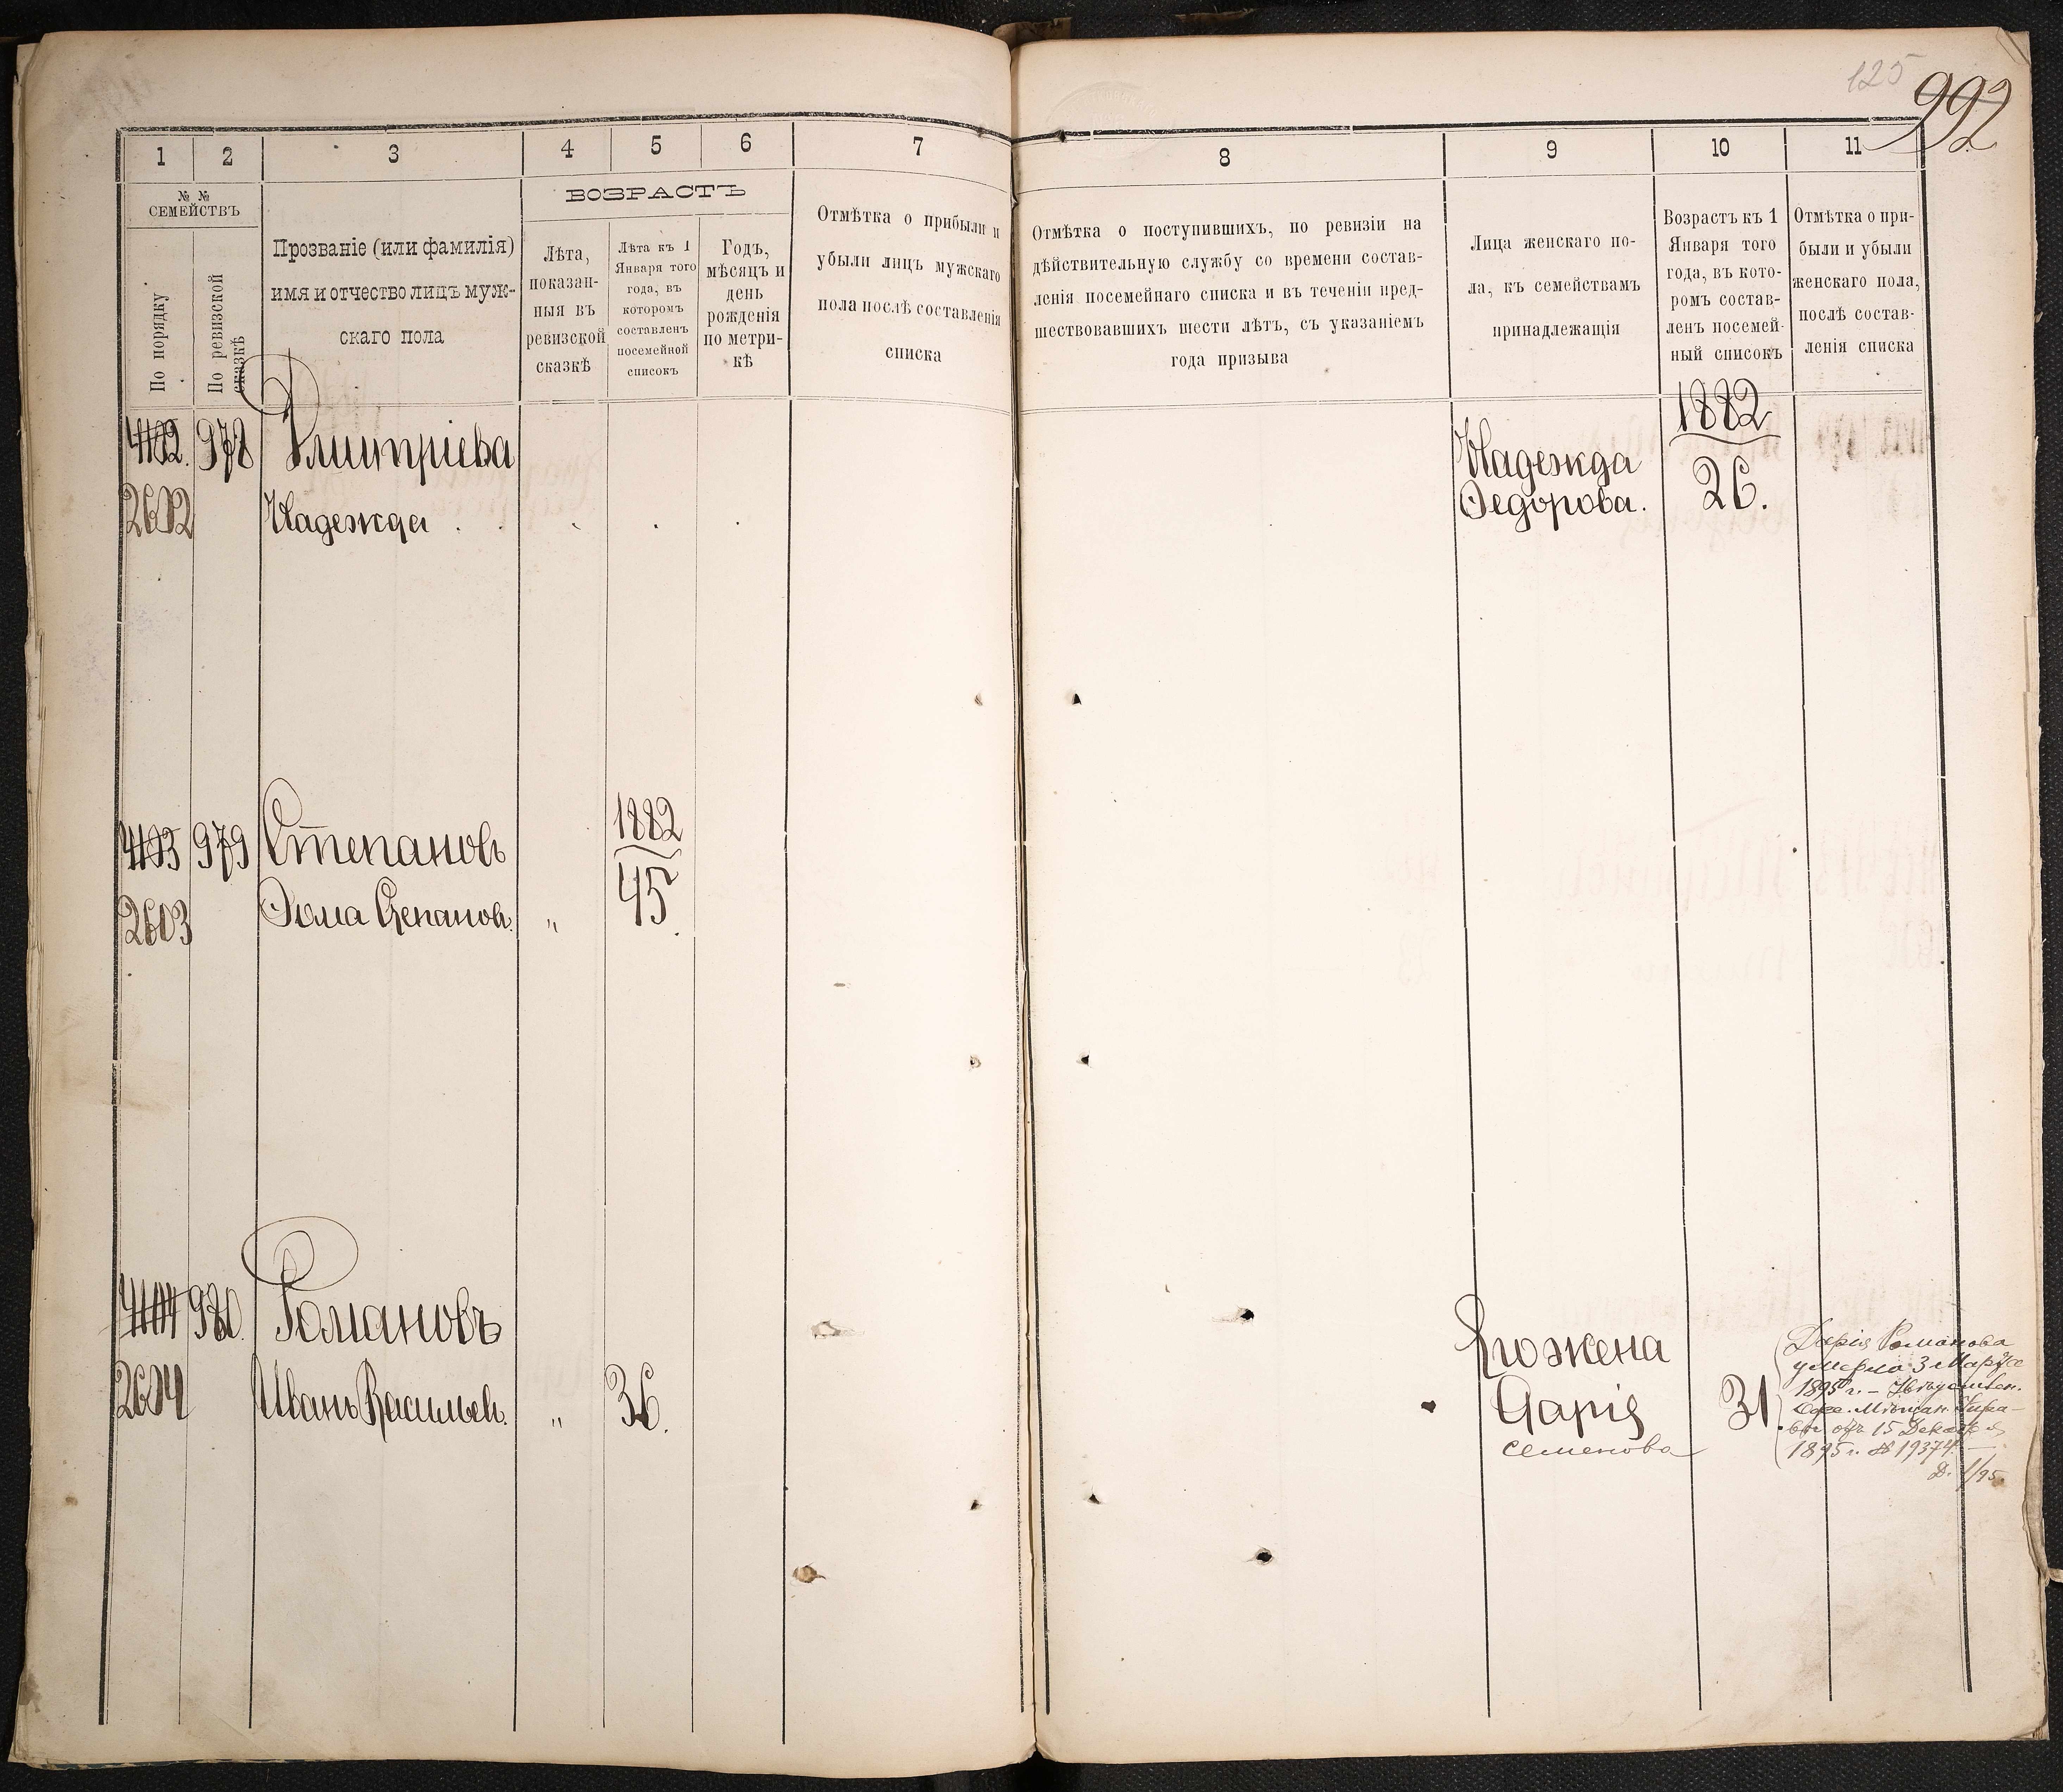 125
992
1 2 3 4 5 6 7
№ №
СЕМЕЙСТВЪ
По порядку
По ревизской
сказкѣ
Прозваніе (или фамилія)
имя и отчество лицъ муж-
скаго пола
ВОЗРАСТЪ
Лѣта,
показан-
ныя въ
ревизской
сказкѣ
Лѣта къ 1
Января того
года, въ
которомъ
составленъ
посемейной
списокъ
Годъ,
мѣсяцъ и
день
рожденія
по метри-
кѣ
Отмѣтка о прибыли и
убыли лицъ мужскаго
пола послѣ составленія
списка
4102. 978 Дмитріева
2602 Надежда
1882
4103 979 Степановъ
45.
2603 Ѳома Степановъ. "
4104 980. Романовъ
2604 Иванъ Васильев. " 36.
8 9 10 11
Отмѣтка о поступившихъ, по ревизіи на
дѣйствительную службу со времени состав-
ленія посемейнаго списка и въ теченіи пред-
шествовавшихъ шести лѣтъ, съ указаніемъ
года призыва
Лица женскаго по-
ла, къ семействамъ
принадлежащія
Возрастъ къ 1
Января того
года, въ кото-
ромъ состав-
ленъ посемей-
ный списокъ
Отмѣтка о при-
были и убыли
женскаго пола,
послѣ состав-
ленія списка
1882
Надежда
Ѳедорова. 26.
Его жена
Дарія 31.
Семенова
Дарія Романова
умерла 3 Марта
1895 г. –
Мѣщан. Упра-
вы отъ 15 Декабря
1895 г. № 19374 –